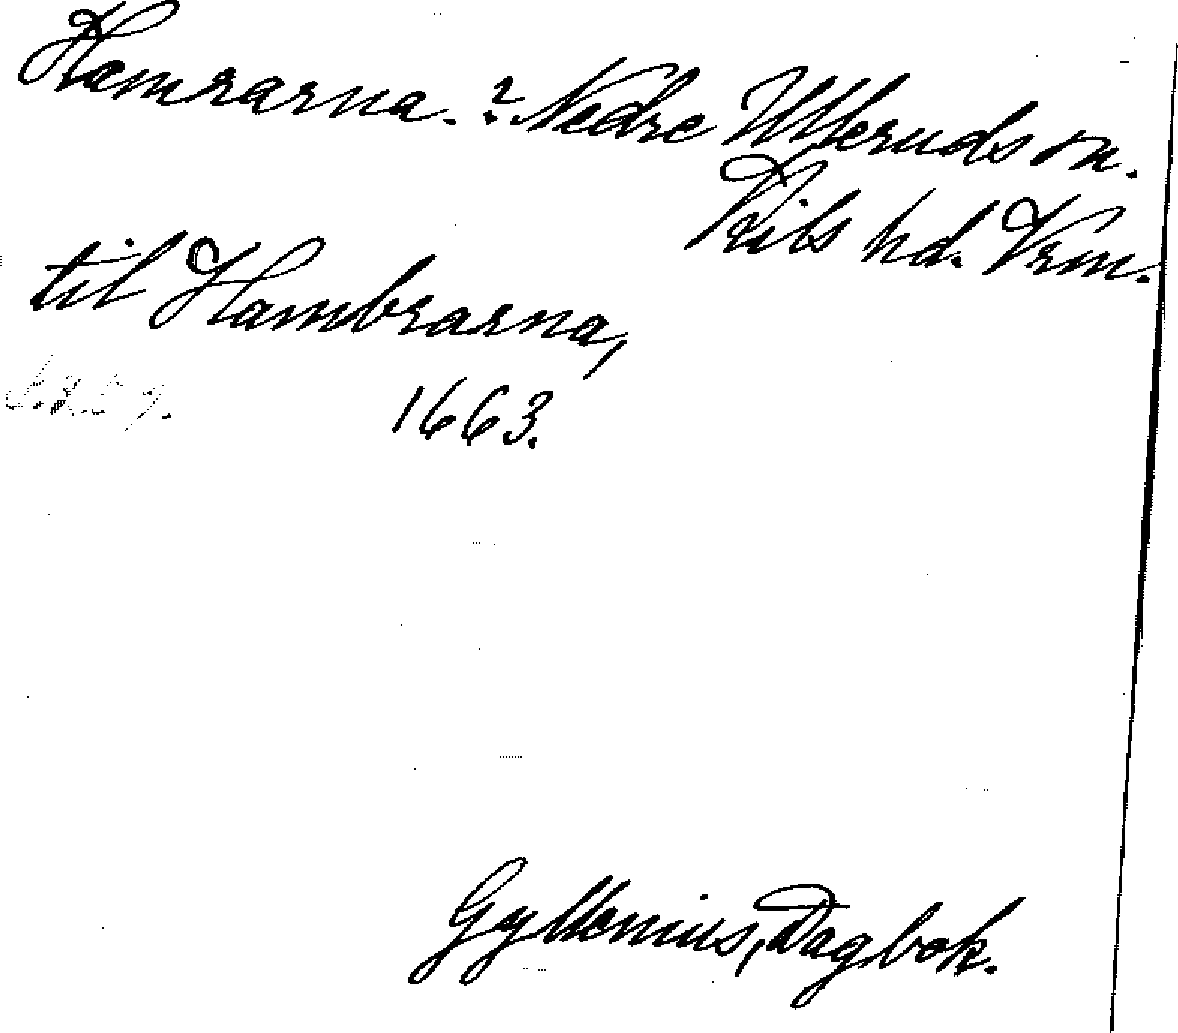 Hamrarna. ? Nedre Ulleruds sn.
Kils hd. Vrm.
til Hambrarna,
1663.
Gyllenius, Dagbok.